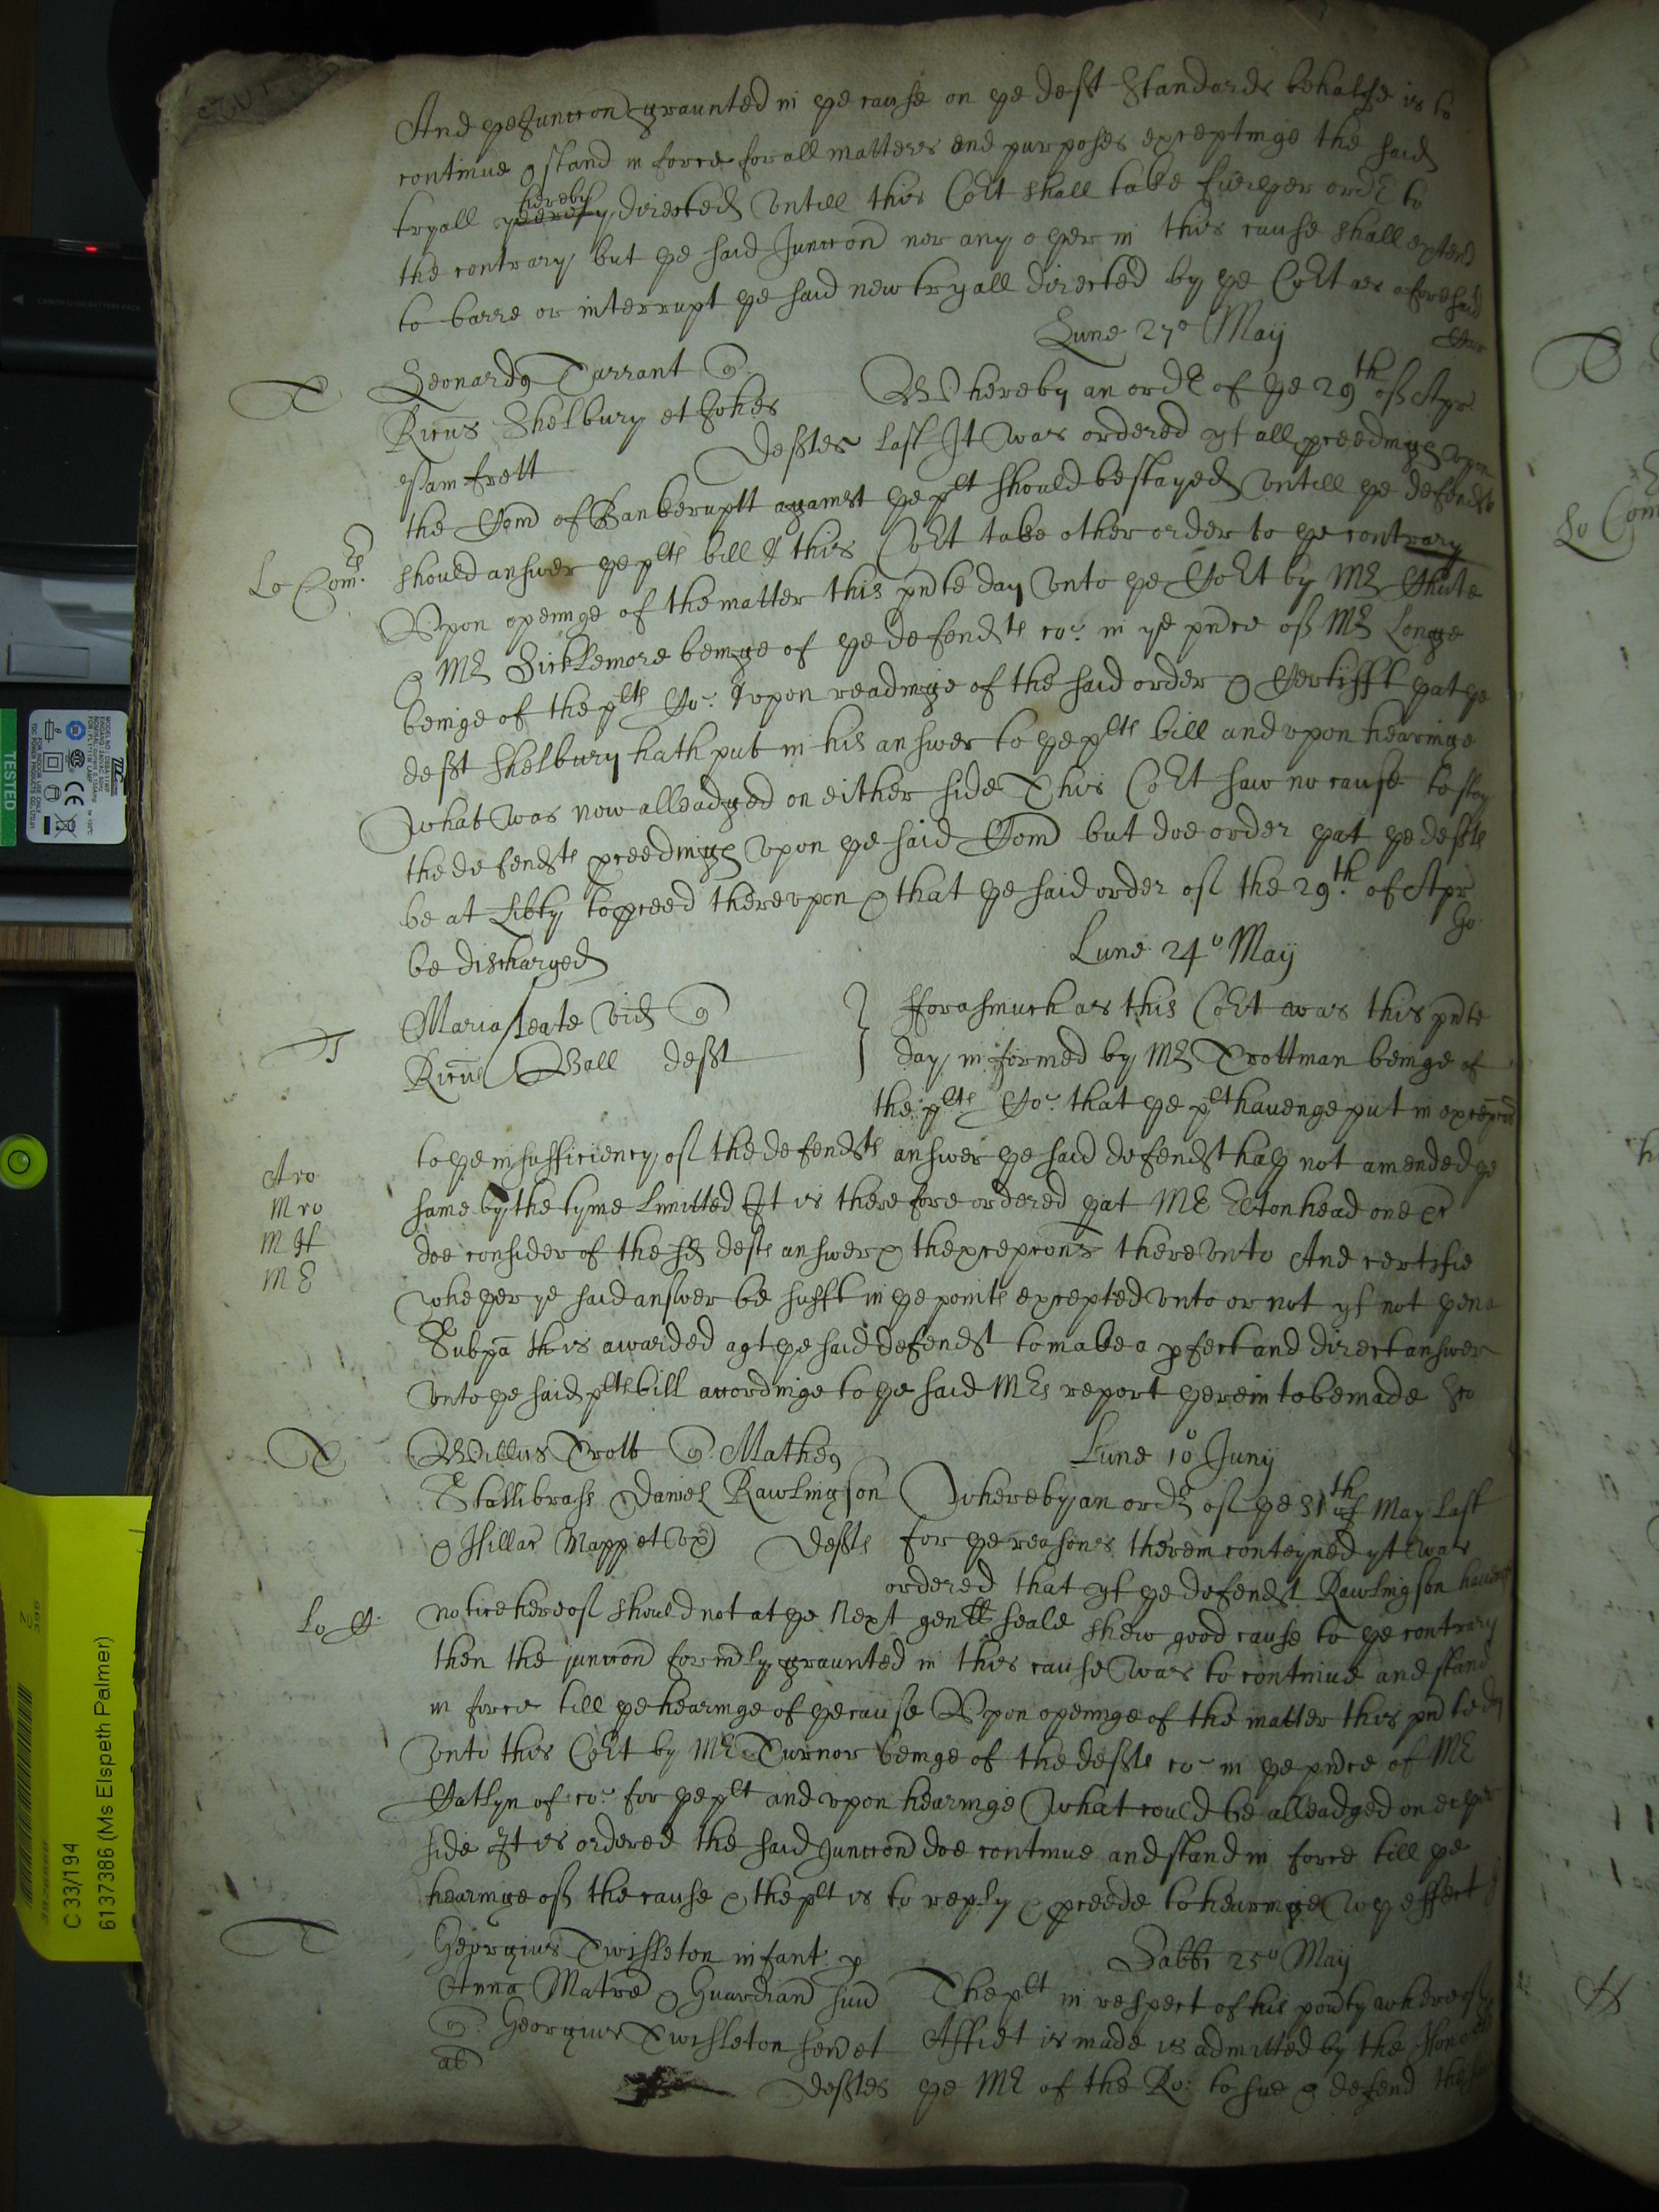 And ye Junccon graunted in ye cause on ye deft Standards behalfe is to
continue & stand in force for all matters and purposes exceptinge the said
tryall hereby directed Untill this Cort shall take further ordr to
the contrary but ye said Junccon nor any oyer in this cause shall extend
to barre or interrupt ye said new tryall directed by ye Cort as aforesaid
Lune 27o Maij
Leonardus Tarrant
Ricus Shelbury et Johes
Whereby an ordr of ye 29th of Apr
Deftes last It was ordered yt all pceedings upon
the Com of Bankeruptt against ye plt should be stayed Untill ye defendts
Lo Comrs
should answer ye plts bill & this Cort take other order to ye contrary
Upon openinge of the matter this pnte day Unto ye Cort by Mr Chute
& Mr Sicklemore beinge of ye defendts co: in ye pnce of Mr Longe
beinge of the plts Co: & upon readinge of the said order & Certifft yat ye
deft Shelbury hath put in his answer to ye plts bill and upon hearinge
what was now alleadged on either side This Cort saw no cause to stay
the defendts pceedings upon ye said Com but doe order yat ye defts
be at Libty to pceed thereupon & that ye said order of the 29th of Apr
be discharged
Lune 24o Maij
Maria Leate Vid
Ricus Wall deft
fforasmuch as this Cort was this pnte
day informed by Mr Trottman beinge of
the plts Co: that ye plt havenge put in excepcons
to ye insufficiency of the defendts answer ye said defendt hay not amended ye
same by the tyme Limitted It is therefore ordered yat Mr Eltonhead one &c
doe consider of the sd defts answer & the excepcons thereunto And certifie
wheyer ye said answer be sufft in ye points excepted unto or not yf not yen a
Subpa is awarded agt ye said defendt to make a pfect and direct answer
unto ye said plts bill accordinge to ye said Mrs report yerein to be made
Willus Trott Matheus
Lune 1o Junij
Stallibrass Daniel Rawlingson
Whereby an ordr of ye 31th of May last
& Hillar Mappet Defts for ye reasons therein conteyned yt was
ordered that yf ye defendt Rawlingson haveing
Lo
notice hereof should not at ye next genll seale shew good cause to ye contrary
then the junccon formrly graunted in this cause was to continue and stand
in force till ye hearinge of ye cause Upon openinge of the matter this pnte day
Unto this Cort by Mr Turnor beinge of the defts co: in ye pnce of Mr
Catlyn of co: for ye plt and upon hearinge what could be alleadged on eiyer
side It is ordered the said Junccon doe continue and stand in force till ye
hearinge of the cause & the plt is to reply & pceede to hearinge wy effect
Georgius Twisleton infant: p
Sabbi 25o Maij
Anna Matre & Guardian suu
The plt in respect of his povty whereof
Georgius Twisleton sen et
Affidt is made is admitted by the Honoble
al
Deftes ye Mr of the Ro: to sue & defend the
C 33/194
6137386 (Ms Elspeth Palmer)
TESTED